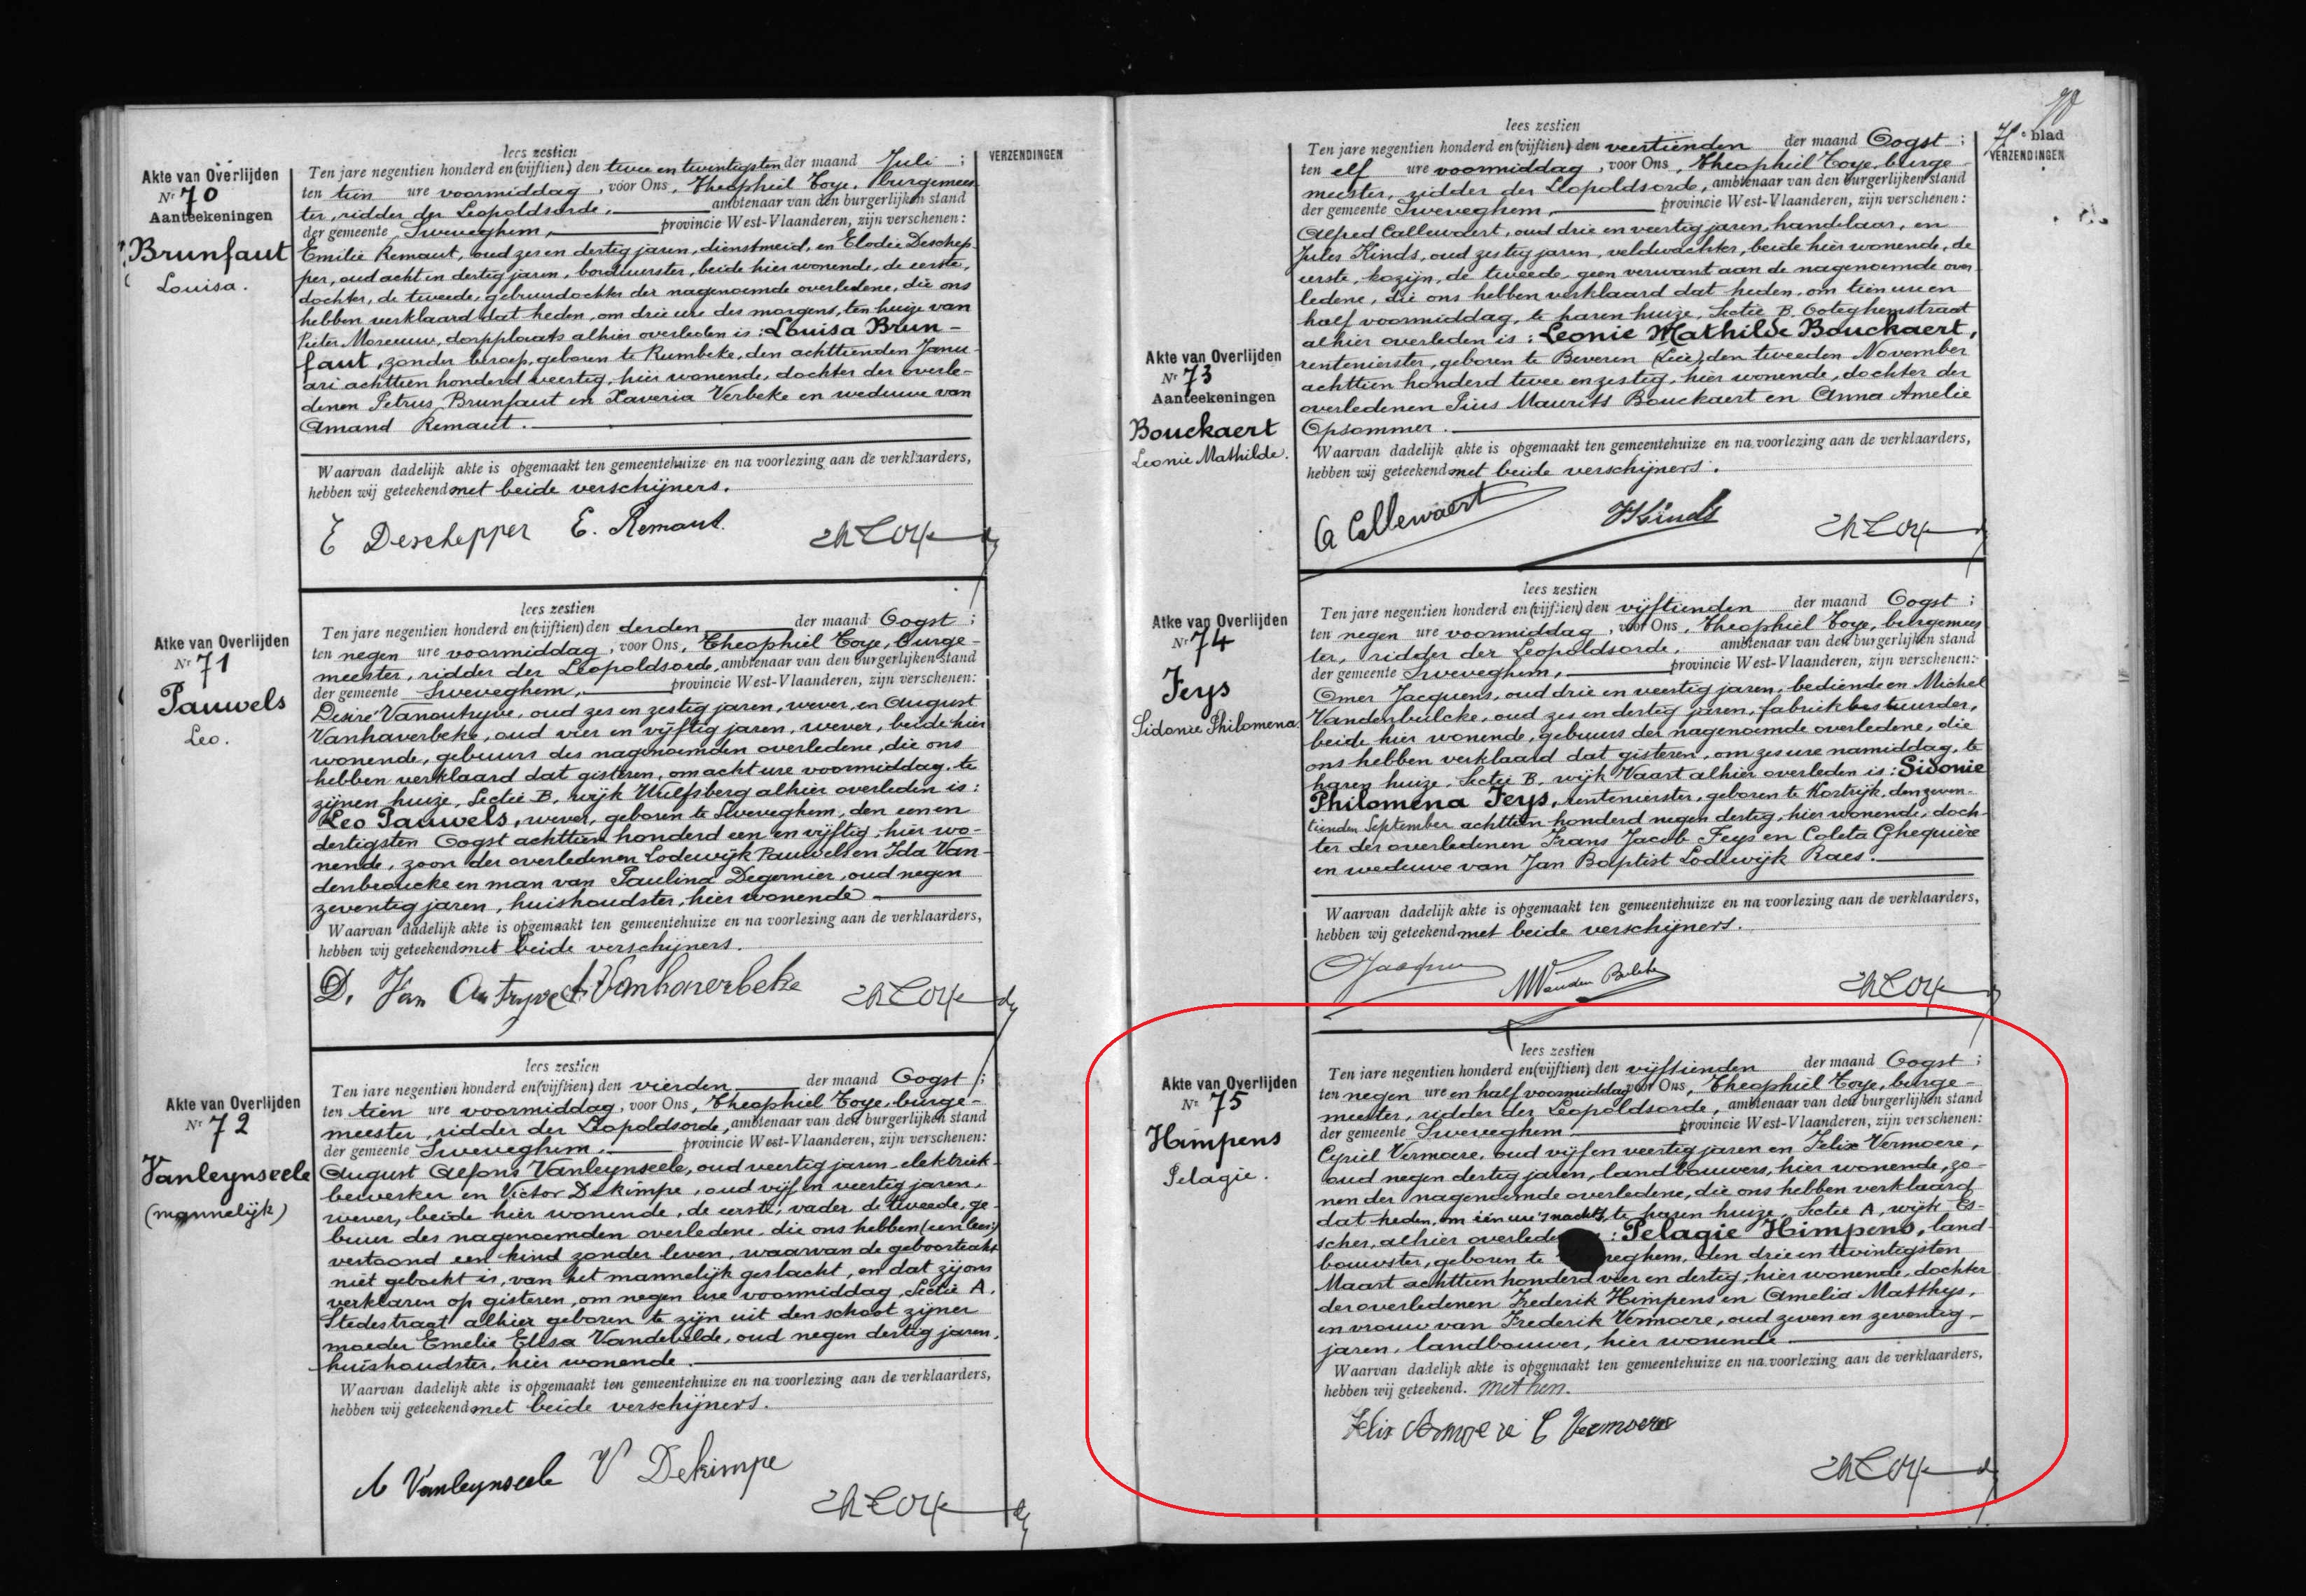 lees zestien
Akte van Overlijden
Nr 70
Aanteekeningen
Brunfaut
Louisa.
Ten jare negentien honderd en (vijftien) den twee en twintigsten der maand Juli ;
ten tien ure voormiddag, voor Ons, Theophiel Toye, burgemees-
ter, ridder der Leopoldsorde, ambtenaar van den burgerlijken stand
der gemeente Sweveghem, provincie West-Vlaanderen, zijn verschenen:
Emilie Remaut, oud zes en dertig jaren, dienstmeid, en Elodie Deschep-
per, oud acht en dertig jaren, borduurster, beide hier wonende, de eerste,
dochter, de tweede, gebuurdochter der nagenoemde overledene, die ons
hebben verklaard dat heden, om drie ure des morgens, ten huize van
Pieter Moreeuw, dorpplaats alhier overleden is: Louisa Brun-
faut, zonder beroep, geboren te Rumbeke, den achttienden Janu-
ari achttien honderd veertig, hier wonende, dochter der overle-
denen Petrus Brunfaut en Xaveria Verbeke en weduwe van
Amand Remaut.
Waarvan dadelijk akte is opgemaakt ten gemeentehuize en na voorlezing aan de verklaarders,
hebben wij geteekend met beide verschijners.
E Deschepper E. Remaut
VERZENDINGEN
lees zestien
Akte van Overlijden
Nr 71
Pauwels
Leo.
Ten jare negentien honderd en (vijftien) den derden der maand Oogst ;
ten negen ure voormiddag, voor Ons, Theophiel Toye, burge-
meester, ridder der Leopoldsorde, ambtenaar van den burgerlijken stand
der gemeente Sweveghem, provincie West-Vlaanderen, zijn verschenen:
Desiré Vanoutryve, oud zes en zestig jaren, wever, en August
Vanhaverbeke, oud vier en vijftig jaren, wever, beide hier
wonende, gebuurs des nagenoemden overledene, die ons
hebben verklaard dat gisteren, om acht ure voormiddag, te
zijnen huize, Sectie B, wijk Wulfsberg alhier overleden is:
Leo Pauwels, wever, geboren te Sweveghem, den een en
dertigsten Oogst achttien honderd een en vijftig, hier wo-
nende, zoon der overledenen Lodewijk Pauwels en Ida Van-
denbroucke en man van Paulina Degernier, oud negen
zeventig jaren, huishoudster, hier wonende
Waarvan dadelijk akte is opgemaakt ten gemeentehuize en na voorlezing aan de verklaarders,
hebben wij geteekend met beide verschijners.
D. Van Outryve A. Vanhaverbeke
lees zestien
Akte van Overlijden
Nr 72
Vanleynseele
(mannelijk)
Ten jare negentien honderd en (vijftien) den vierden der maand Oogst ;
ten tien ure voormiddag, voor Ons, Theophiel Toye, burge-
meester, ridder der Leopoldsorde, ambtenaar van den burgerlijken stand
der gemeente Sweveghem, provincie West-Vlaanderen, zijn verschenen:
August Alfons Vanleynseele, oud veertig jaren, elektriek-
bewerker en Victor Dekimpe, oud vijf en veertig jaren,
wever, beide hier wonende, de eerste, vader, de tweede, ge-
buur des nagenoemden overledene, die ons hebben (een lees:)
vertoond een kind zonder leven, waarvan de geboorteakt
niet geboekt is, van het mannelijk geslacht, en dat zij ons
verklaren op gisteren, om negen ure voormiddag, Sectie A,
Stedestraat alhier geboren te zijn uit den schoot zijner
moeder Emelie Elisa Vandevelde, oud negen dertig jaren,
huishoudster, hier wonende.
Waarvan dadelijk akte is opgemaakt ten gemeentehuize en na voorlezing aan de verklaarders,
hebben wij geteekend met beide verschijners.
A Vanleynseele V Dekimpe
blad
VERZENDINGEN
lees zestien
Akte van Overlijden
Nr 73
Aanteekeningen
Bouckaert
Leonie Mathilde.
Ten jare negentien honderd en (vijftien) den veertienden der maand Oogst ;
ten elf ure voormiddag, voor Ons, Theophiel Toye, burge-
meester, ridder der Leopoldsorde, ambtenaar van den burgerlijken stand
der gemeente Sweveghem, provincie West-Vlaanderen, zijn verschenen:
Alfred Callewaert, oud drie en veertig jaren, handelaar, en
Jules Kinds, oud zestig jaren, veldwachter, beide hier wonende, de
eerste, kozijn, de tweede, geen verwant aan de nagenoemde over-
ledene, die ons hebben verklaard dat heden, om tien ure en
half voormiddag, te haren huize, Sectie B, Ooteghemstraat
alhier overleden is: Leonie Mathilde Bouckaert,
rentenierster, geboren te Beveren (Leie), den tweeden November
achttien honderd twee en zestig, hier wonende, dochter der
overledenen Pius Maurits Bouckaert en Anna Amelie
Opsommer.
Waarvan dadelijk akte is opgemaakt ten gemeentehuize en na voorlezing aan de verklaarders,
hebben wij geteekend met beide verschijners.
A Callewaert J Kinds
lees zestien
Akte van Overlijden
Nr 74
Feys
Sidonie Philomena
Ten jare negentien honderd en (vijftien) den vijftienden der maand Oogst ;
ten negen ure voormiddag, voor Ons, Theophiel Toye, burgemees
ter, ridder der Leopoldsorde, ambtenaar van den burgerlijken stand
der gemeente Sweveghem, provincie West-Vlaanderen, zijn verschenen:
Omer Jacquens, oud drie en veertig jaren, bediende en Michel
Vandenbulcke, oud zes en dertig jaren, fabriekbestuurder,
beide hier wonende, gebuurs der nagenoemde overledene, die
ons hebben verklaard dat gisteren, om zes ure namiddag, te
haren huize, Sectie B, wijk Vaart alhier overleden is: Sidonie
Philomena Feys, rentenierster, geboren te Kortrijk, den zeven-
tienden September achttien honderd negen dertig, hier wonende, doch-
ter der overledenen Frans Jacob Feys en Coleta Ghequière
en weduwe van Jan Baptist Lodewijk Raes.
Waarvan dadelijk akte is opgemaakt ten gemeentehuize en na voorlezing aan de verklaarders,
hebben wij geteekend met beide verschijners.
lees zestien
Akte van Overlijden
Nr 75
Himpens
Pelagie.
Ten jare negentien honderd en (vijftien) den vijftienden der maand Oogst ;
ten negen ure en half voormiddag voor Ons, Theophiel Toye, burge-
meester, ridder der Leopoldsorde, ambtenaar van den burgerlijken stand
der gemeente Sweveghem provincie West-Vlaanderen, zijn verschenen:
Cyriel Vermoere, oud vijf en veertig jaren en Felix Vermoere,
oud negen dertig jaren, landbouwers, hier wonende, zo-
nen der nagenoemde overledene, die ons hebben verklaard
dat heden, om één ure 's nachts, te haren huize, Sectie A, wijk Es-
scher, alhier overlede : Pelagie Himpens, land-
bouwster, geboren te eghem, den drie en twintigsten
Maart achttien honderd vier en dertig, hier wonende, dochter
der overledenen Frederik Himpens en Amelia Matthys,
en vrouw van Frederik Vermoere, oud zeven en zeventig
jaren, landbouwer, hier wonende
Waarvan dadelijk akte is opgemaakt ten gemeentehuize en na voorlezing aan de verklaarders,
hebben wij geteekend. met hen.
Felix Vermoere C Vermoere